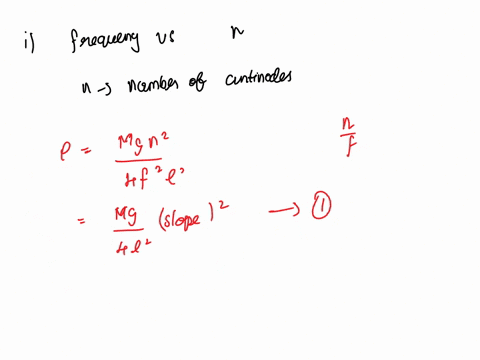 i) frequency vs n
n → number of antinodes
ρ = Mgn² / 4f²l²
n/f
= Mg / 4l² (slope)² → ①